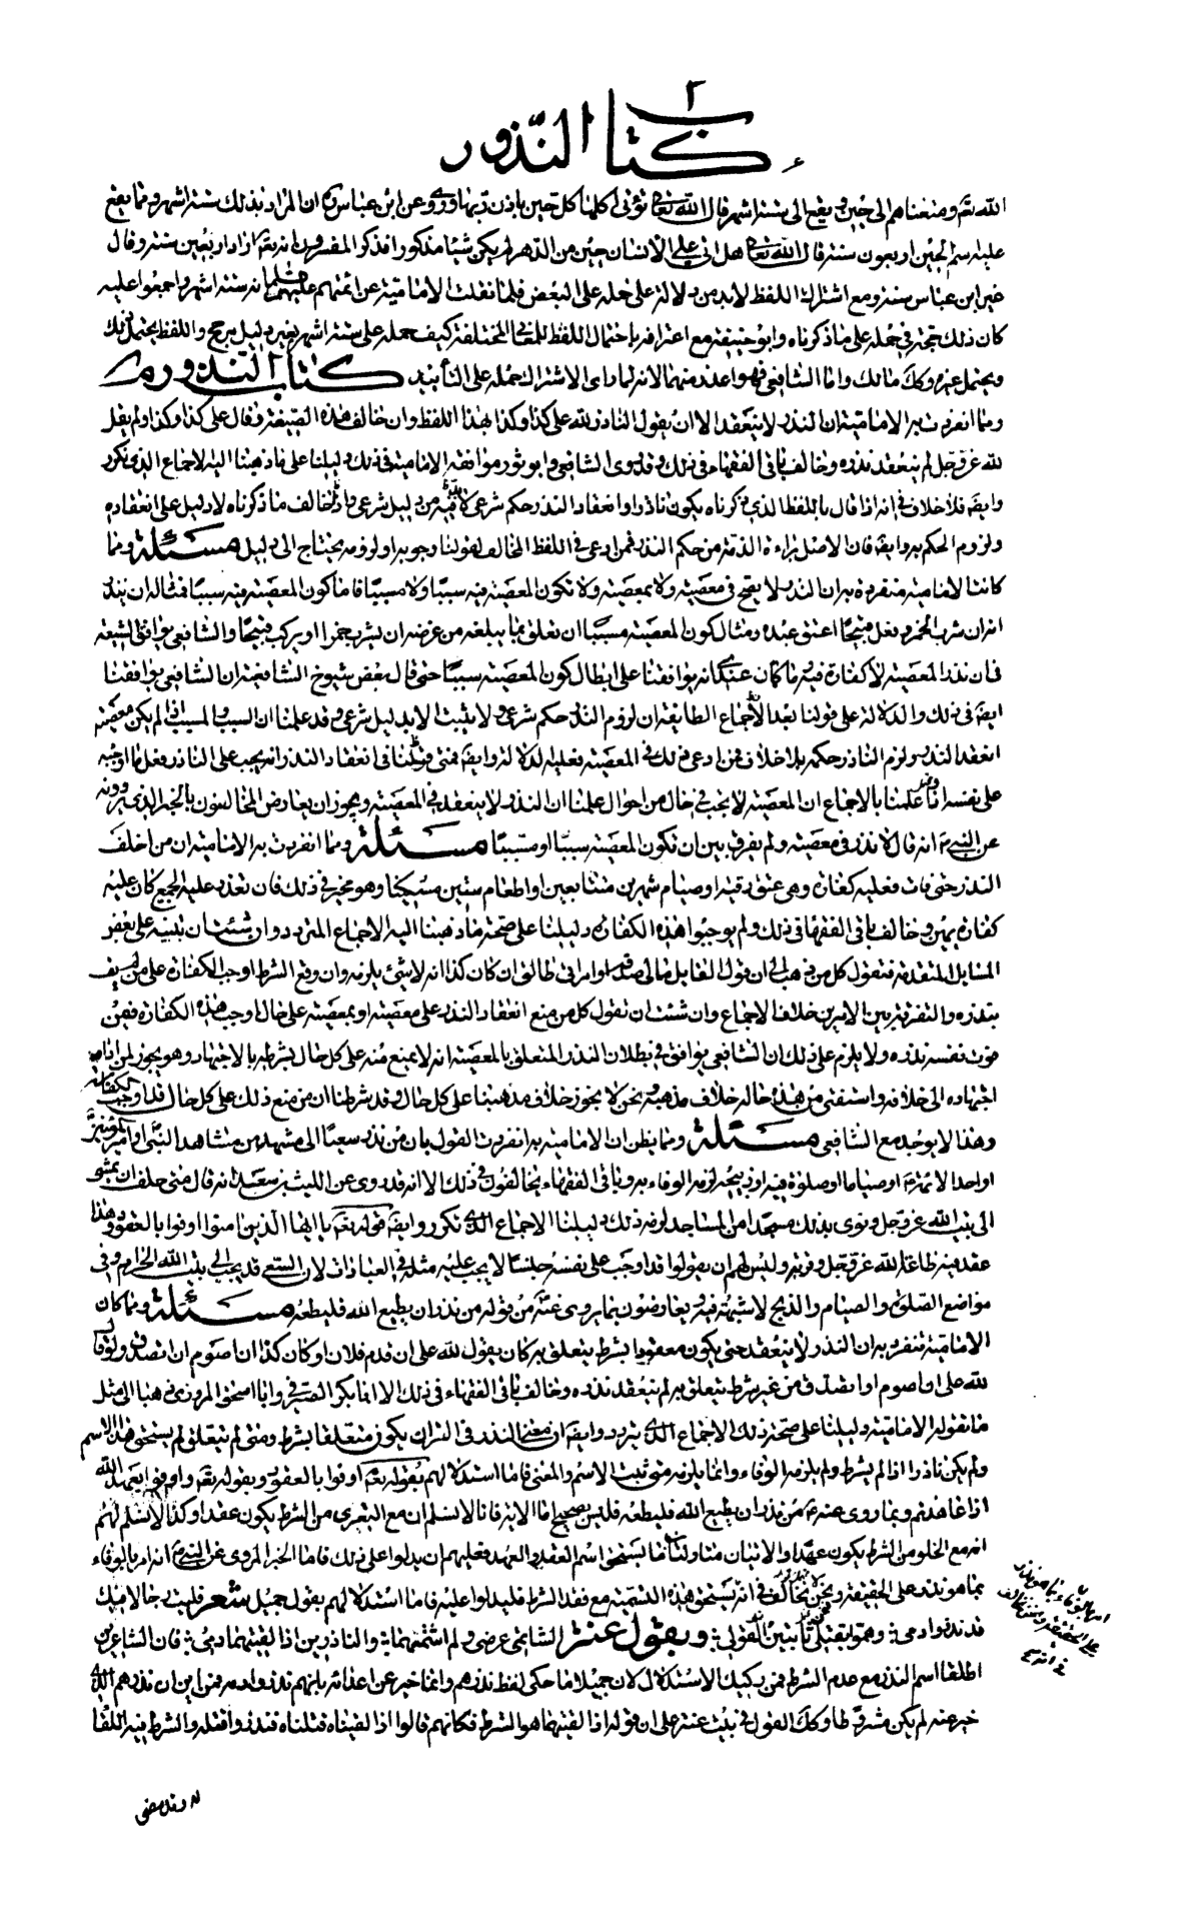 كتاب النذور
الله تعالى ومتعناهم الى حين ويقع الى ستة اشهر قال الله تعالى تؤتى اكلها كل حين باذن ربها وروى عن ابن عباس ره ان المراد بذلك ستة اشهر ومما يقع
عليه اسم الحين اربعون سنة قال الله تعالى هل اتى على الانسان حين من الدهر لم يكن شيئا مذكورا فذكر المفسرون انه تعالى اراد اربعين سنة وقال
غير ابن عباس سنة ومع اشتراك اللفظ لابد من دلالة على حمله على البعض فلما نقلت الامامية عن ائمتهم عليهم السلام انه ستة اشهر واجمعوا عليه
كان ذلك حجة في حمله على ما ذكرناه وابو حنيفة مع اعترافه باحتمال اللفظ للمعاني المختلفة كيف حمله على ستة اشهر بغير دليل مرجح واللفظ يحتمل ذلك
ويحتمل غيره وكك مالك واما الشافعي فهو اعذر منهما لانه لما راى الاشتراك حمله على التأبيد كتاب النذور
ومما انفردت به الامامية ان النذر لا ينعقد الا ان يقول الناذر لله على كذا وكذا بهذا اللفظ وان خالف هذه الصيغة وقال على كذا وكذا ولم يقل
لله عز وجل لم ينعقد نذره وخالف باقي الفقهاء في ذلك وقد روى الشافعي وابو ثور موافقة الامامية في ذلك دليلنا على ما ذهبنا اليه الاجماع الذي تكرر
وايضا فلا خلاف في انه اذا قال باللفظ الذي ذكرناه يكون ناذرا وانعقاد النذر حكم شرعي لابد فيه من دليل شرعي واذا خالف ما ذكرناه لا دليل على انعقاده
ولزوم الحكم به وايضا فان الاصل براءة الذمة من حكم النذر فمن ادعى في اللفظ المخالف لقولنا وجوبه او لزومه يحتاج الى دليل مسئلة ومما
كانت الامامية منفردة به ان النذر لا يصح في معصية ولا بمعصية ولا تكون المعصية فيه سببا ولا مسببا فاما كون المعصية فيه سببا فمثاله ان ينذر
انه ان شرب الخمر وفعل قبيحا اعتق عبده ومثال كون المعصية مسببا ان تعلق بما يبلغه من غرضه ان يشرب خمرا او يركب قبيحا والشافعي يوافق الشيعة
في ان نذر المعصية لا كفارة فيه وما كان عندي انه يوافقنا على ابطال كون المعصية سببا حتى قال بعض شيوخ الشافعية ان الشافعي يوافقنا
ايضا في ذلك والدلالة على قولنا بعد الاجماع الطايفة ان لزوم النذر حكم شرعي ولا يثبت الا بدليل شرعي وقد علمنا ان السبب والمسبب اذا لم يكن معصية
انعقد النذر ولزم الناذر حكمه بلا خلاف فمن ادعى ذلك في المعصية فعليه الدلالة وايضا فمتى قلنا في انعقاد النذر انه يجب على الناذر فعل ما اوجبه
على نفسه وقد علمنا بالاجماع ان المعصية لا يجب في حال من احوال علمنا ان النذر لا ينعقد في المعصية ويجوز ان يعارض المخالفون بالخبر الذي يروونه
عن النبي انه قال لا نذر في معصية ولم يفرق بين ان تكون المعصية سببا او مسببا مسئلة ومما انفردت به الامامية ان من اخلف
النذر حتى فات فعليه كفارة وهي عتق رقبة او صيام شهرين متتابعين او اطعام ستين مسكينا وهو مخير في ذلك فان تعذر عليه الجميع كان عليه
كفارة يمين وخالف باقي الفقهاء في ذلك ولم يوجبوا هذه الكفارة دليلنا على صحة ما ذهبنا اليه الاجماع المتردد وان شئت ان تبنيه على بعض
المسايل المتقدمة فتقول كل من ذهب الى ان قول القايل مالي صدقة او امراتي طالق ان كان كذا انه لا شيئ يلزمه وان وقع الشرط اوجب الكفارة على من لم يف
بنذره والتفرقة بين الامرين خلاف الاجماع وان شئت ان تقول كل من منع انعقاد النذر على معصية او بمعصية على حال اوجب هذه الكفارة فيمن
فوت نفسه نذره ولا يلزم على ذلك ان الشافعي يوافق في بطلان النذر المتعلق بالمعصية انه لا يمنع منه على كل حال بشرطه بالاجتهاد وهو يجوز لمن اداه
اجتهاده الى خلافه واستفتى من هذه حاله خلاف مذهبه ونحن لا يجوز خلاف مذهبنا على كل حال وقد شرطنا ان من منع ذلك على كل حال قد اوجب الكفارة
وهذا لا يوجد مع الشافعي مسئلة ومما يظن ان الامامية به انفردت القول بان من نذر سعيا الى مشهد من مشاهد النبي او امير المؤمنين
او احد الائمة او صياما او صلوة فيه او ذبيحة لزمه الوفاء به وباقي الفقهاء يخالفون في ذلك الا انه قد روى عن الليث بن سعد انه قال متى حلف ان يمشي
الى بيت الله عز وجل ونوى بذلك مسجدا من المساجد لزمه ذلك دليلنا الاجماع الذي تكرر وايضا قوله تعالى يا ايها الذين امنوا اوفوا بالعقود وهذا
عقد فيه طاعة لله عز وجل وقربة وليس لهم ان يقولوا قد اوجب على نفسه جنسا لا يجب عليه مثله في العبادات لان السعي قد يجب الى بيت الله الحرام وفي
مواضع الصلوة والصيام والذبح لا شبهة فيه ويعارضون بما يروى عنه من قوله من نذر ان يطيع الله فليطعه مسئلة ومما كان
الامامية تنفرد به ان النذر لا ينعقد حتى يكون معقودا بشرط يتعلق به كان يقول لله على ان قدم فلان او كان كذا ان اصوم او اتصدق ولو قال
لله على ان اصوم او اتصدق من غير شرط يتعلق به لم ينعقد نذره وخالف باقي الفقهاء في ذلك الا ان ابا بكر الصيرفي وابا اسحق المروزي ذهبا الى مثل
ما تقوله الامامية دليلنا على صحة ذلك الاجماع الذي يتردد وايضا ان معنى النذر في القران يكون متعلقا بشرط ومتى لم يتعلق لم يستحق هذا الاسم
ولم يكن ناذرا اذا لم يشرط ولم يلزمه الوفاء وانما يلزمه متى ثبت الاسم والمعنى فاما استدلالهم بقوله تعالى اوفوا بالعقود وبقوله تعالى واوفوا بعهد الله
اذا عاهدتم وبما روى عنه من نذر ان يطيع الله فليطعه فليس بصحيح اما الاية فانا لا نسلم ان مع التعرى من الشرط يكون عقدا وكذا لا نسلم لهم
انه مع الخلو من الشرط يكون عهدا والايتان متناولتان ما يستحق اسم العقد والعهد فعليهم ان يدلوا على ذلك فاما الخبر المروى عن النبي انه امر بالوفاء
بما هو نذر على الحقيقة ونحن نخالف في انه يستحق هذه التسمية مع فقد الشرط فليدلوا عليه فاما استدلالهم بقول جميل شعر فليت رجالا فيك
قد نذروا دمي وهموا بقتلي يا بثين لقوني وبقول عنتر الشاتمي عرضي ولم اشتمهما والناذرين اذا لقيتهما دمي فان الشاعرين
اطلقا اسم النذر مع عدم الشرط فمن ركيك الاستدلال لان جميلا ما حكى لفظ نذرهم وانما خبر عن اعدائه بانهم نذروا دمه فمن اين ان نذرهم الذي
خبر عنه لم يكن مشروطا وكك القول في بيت عنتر على ان قوله اذا لقيتهما هو الشرط فكانهم قالوا اذا لقيناه قتلناه فنذروا قتله والشرط فيه اللقا
امر بالوفاء بما هو نذر
على الحقيقة ونحن نخالف
في انه
وقد مضى